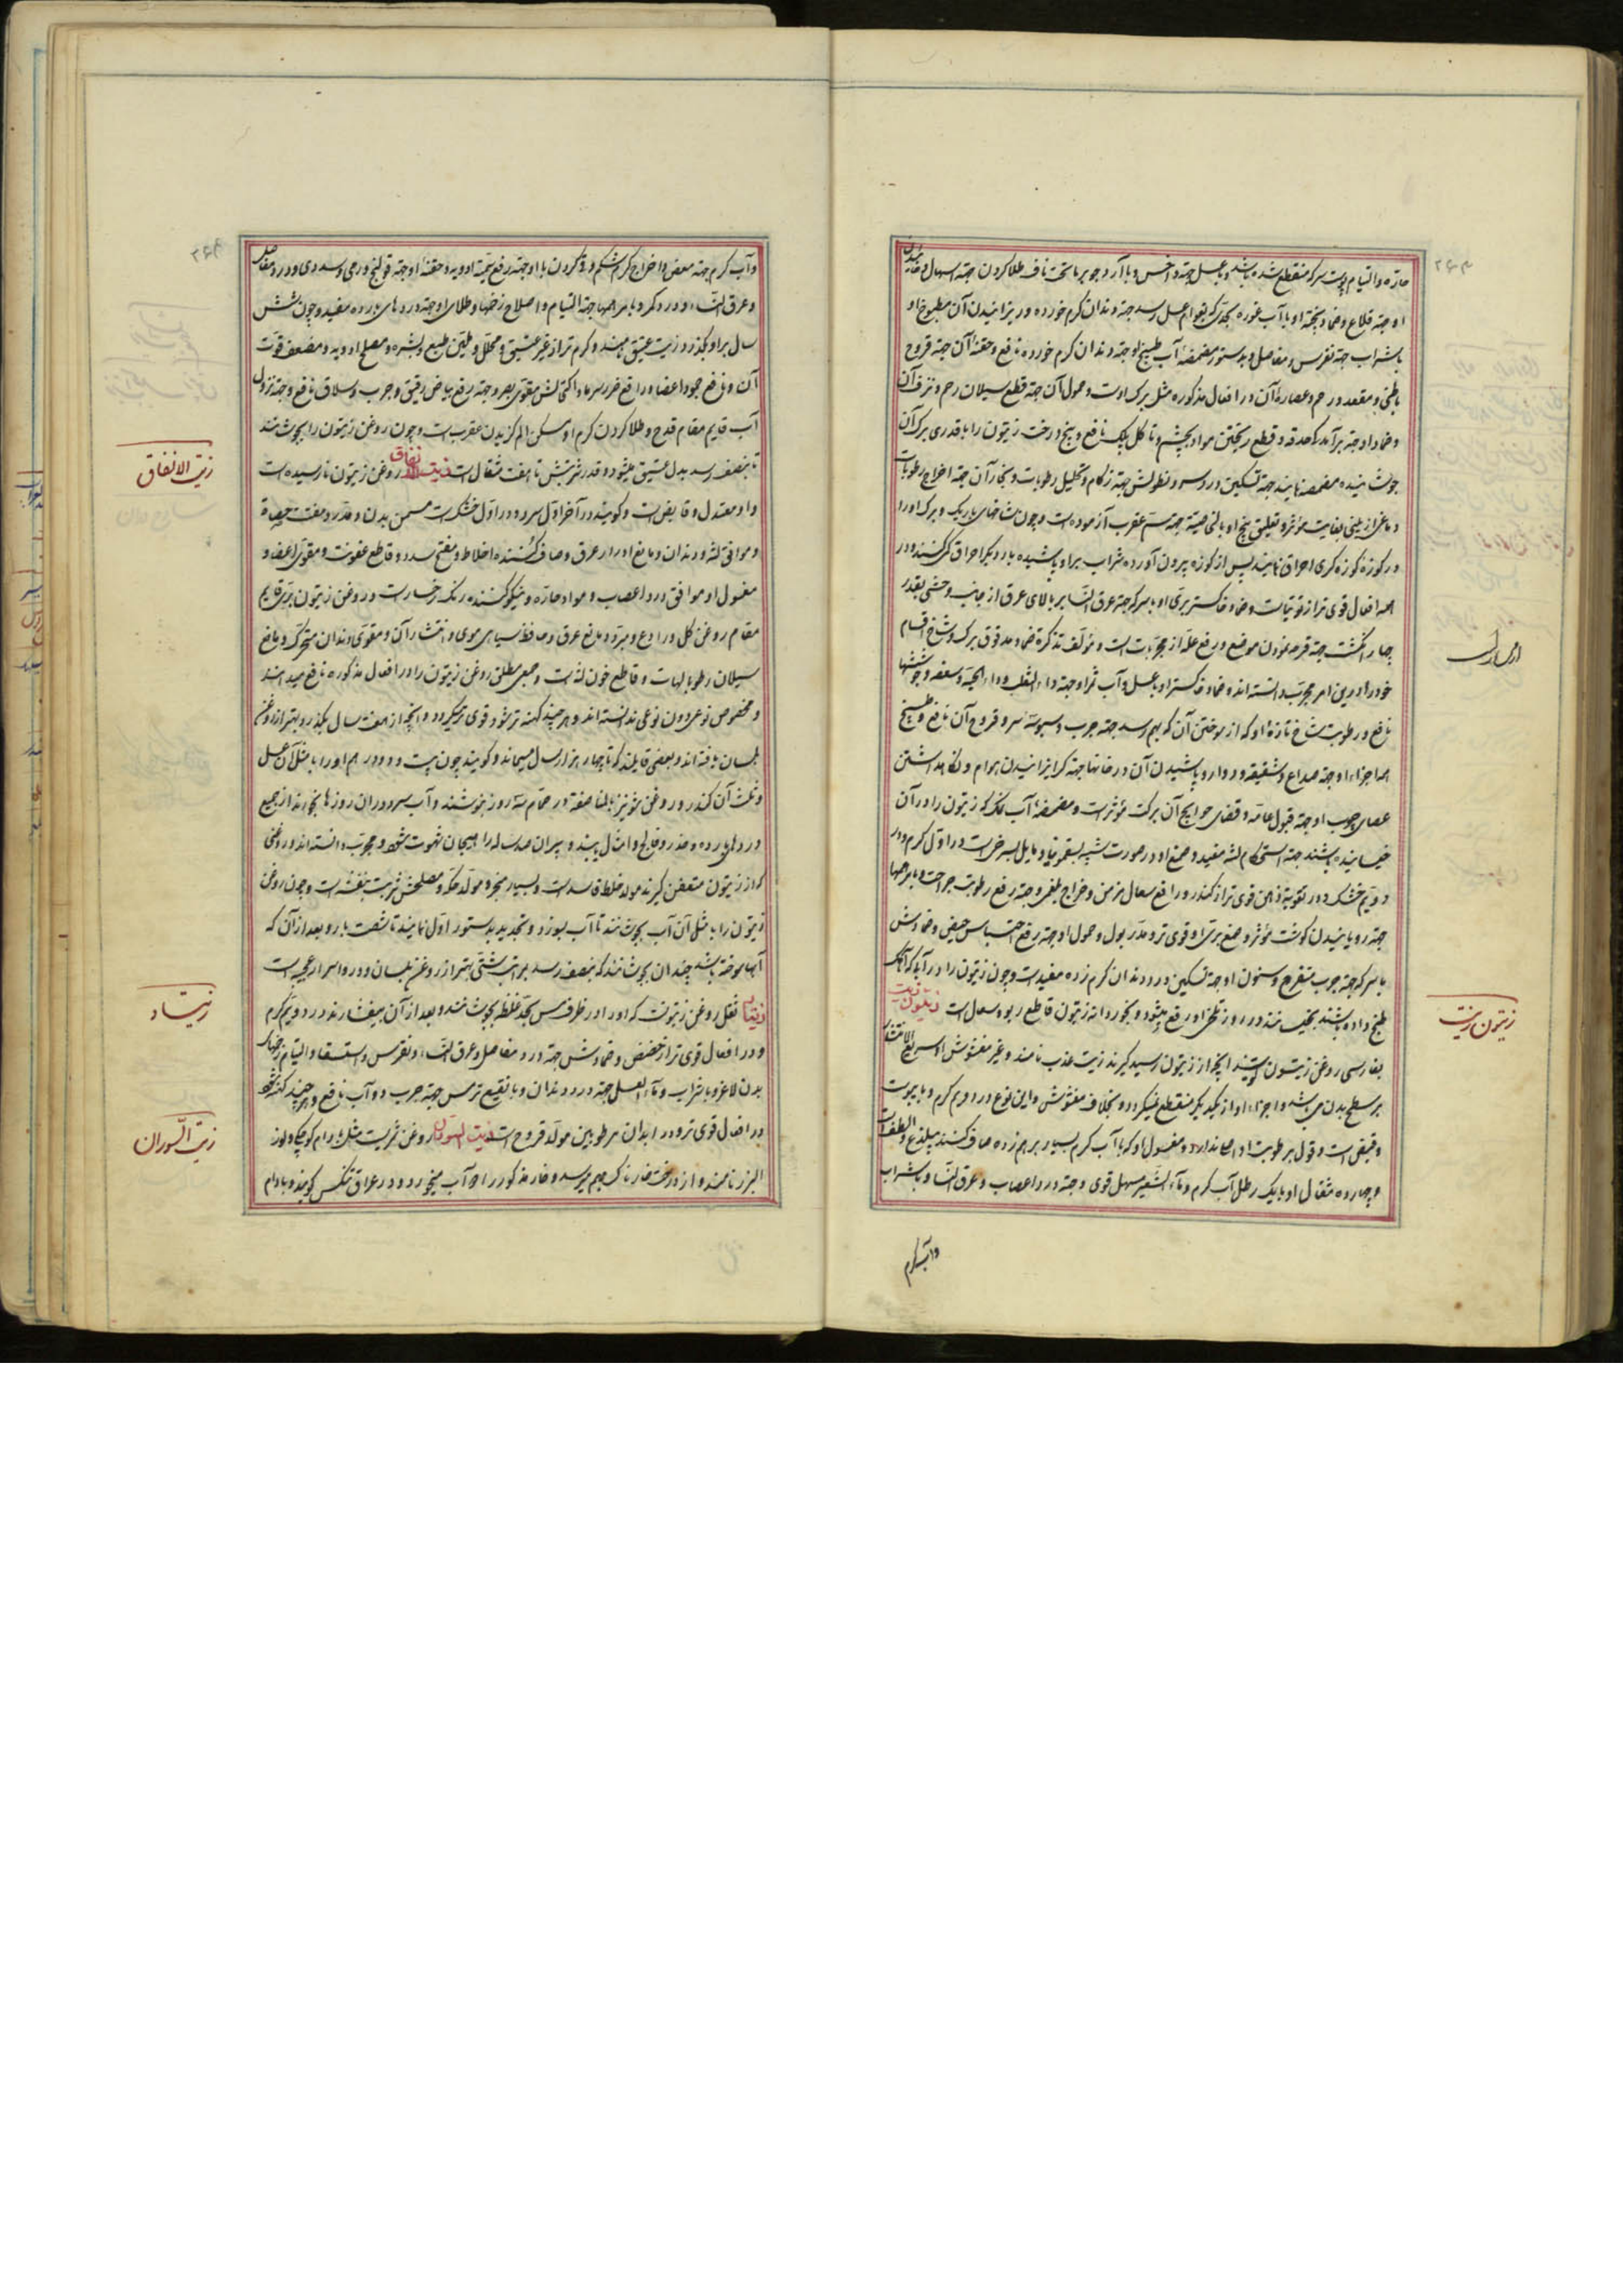 حارّه و التیام پوست سر که منقطع شده باشد و با عسل جهة داخس و با آرد جو بر ما تحت ناف طلا کردن جهة اسهال و خائیدن
او جهة قلاع و ضماد پخته او با آب غوره بحدی که بقوام عسل رسد جهة دندان کرم خورده و ریزانیدن آن مطبوخ او
با شراب جهة نقرس و مفاصل و بدستور مضمضهٔ آب طبیخ او جهة دندان کرم خورده نافع و حقنهٔ آن جهة قروح
باطنی و مقعد و رحم و عصارهٔ آن در افعال مذکوره مثل برک اوست و حمول آن جهة قطع سیلان رحم و نزف آن
و ضماد او جهة برآمدکی حدقه و قطع ریختن مواد بچشم و تاکل پلک نافع و بیخ درخت زیتون را با قدری برک آن
جوشانیده مضمضه نمایند جهة تسکین درد سر و نطولش جهة زکام و تحلیل رطوبات و بخار آن جهة اخراج رطوبات
دماغی از بینی بغایت مؤثر و تعلیق بیخ او بالخاصیة جهة سم عقرب آزموده است و چون شاخهای باریک و برک او را
در کوزه کوزه کری احراق نمایند پس از کوزه بیرون آورده شراب بر او پاشیده بار دیکر احراق کنند در
همه افعال قوی تر از توتیاست و ضماد خاکستر برّی او با سرکه جهة عرق النسا بر بالای عرق از جانب وحشی بقدر
چهار انکشت جهة قرحه نمودن موضع و رفع علّة از مجربات است و مؤلف تذکره ضماد مدقوق برک و شاخ اقسام
خود را درین امر مجرب دانسته اند و ضماد خاکستر او با عسل و آب ثمر او جهة داء الثعلب و داء الحیة و سعفه و جوششها
نافع و رطوبت شاخ تازهٔ او که از سوختن آن بهم رسد جهة جرب و سبوسهٔ سر و قروح آن نافع و طبیخ
همه اجزاء او جهة صداع و شقیقه و دوار و پاشیدن آن در خانها جهة کریزانیدن هوام و نکاهداشتن
عصای چوب او جهة قبول عامه و قضای حوایج آن برکت مؤثر است و مضمضهٔ آب نمک که زیتون را در آن
خیسانیده باشند جهة استحکام لثه مفید و صمغ او در صورت شبیه بسقمونیا و مایل بسرخی است در اول کرم و در
دویم خشک و در تقویة ذهن قوی تر از کندر و رافع سعال مزمن و اخراج بلغم و جهة رفع رطوبت جراحت و با مرهمها
جهة رویانیدن کوشت مؤثر و صمغ برّی او قوی تر و مدر بول و حمول او جهة رفع احتباس حیض و ضمادش
با سرکه جهة جرب متقرح و سنون او جهة تسکین درد دندان کرم زده مفید است و چون زیتون را در آب آهک
طبخ داده باشند بخیسانند در روز تلخی او رفع میشود و بخور دانه زیتون قاطع ربو و سعال است زیتون زیت
بفارسی روغن زیتون کویند آنچه از زیتون رسیده کیرند زیت عذب نامند و غیر مغشوش او سریع الانتشار
بر سطح بدن می باشد و اجزاء او از یکدیکر منقطع نمیکردد و بخلاف مغشوش و این نوع در دویم کرم و با یبوست
و قبض است و قول بر رطوبت او اصلی ندارد و مغسول او که با آب کرم بسیار برهم زده صاف کنند بیلذع و الطف است
و چهارده مثقال او با یک رطل آب کرم و ماء الشعیر مسهل قوی و جهة درد اعصاب و عرق النسا و با شراب
و آب کرم
زیتون زیت
۲۶۳
و آب کرم جهة مغص و اخراج کرم شکم و قی کردن با او جهة رفع سمیّة ادویه و حقنهٔ او جهة قولنج ورمی و سددی و درد مفاصل
و عرق النساء و درد کمر و با مرهمها جهة التیام و اصلاح زخمها و طلای او جهة دردهای بارده مفید و چون شش
سال بر او بکذرد زیت عتیق نامند و کرم تر از غیر عتیق و محلل و ملین طبع و بشره و مصلح ادویه و مضعف قوت
آن و نافع جمود اعضا و رافع ضرر سرما و اکتحالش مقوی بصر و جهة رفع بیاض رقیق و جرب و سلاق نافع و جهة نزول
آب قایم مقام قدح و طلا کردن کرم او مسکن الم کزیدن عقرب است و چون روغن زیتون را بجوشانند
تا بنصف رسد بدل عتیق میشود و قدر شربتش تا هفت مثقال است زیت الانفاق روغن زیتون نارسیده است
و او معتدل و قابض است و کویند در آخر اول سرد و در اول خشک است مسمن بدن و مدر و مفتت حصاة
و موافق لثه و دندان و مانع ادرار عرق و صاف کننده اخلاط و مفتح سدد و قاطع عفونت و مقوی اعضا و
مغسول او موافق درد اعصاب و مواد حارّه و نیکو کننده رنک رخسار است و روغن زیتون برّی قایم
مقام روغن کل و رادع و مبرد و مانع عرق و حافظ سیاهی موی و انتشار آن و مقوی دندان متحرک و مانع
سیلان رطوبات لهات و قاطع خون لثه است و جمعی مطلق روغن زیتون را در افعال مذکوره نافع میدانند
و مخصوص نوعی دون نوعی ندانسته اند و هر چند کهنه تر شود قوی تر میکردد و آنچه از هفت سال بکذرد بهتر از روغن
بلسان یافته اند و بعضی قایلند که تا چهار هزار سال میماند و کویند چون بیست و دو درهم او را با مثل آن عسل
و ثلث آن کندر و روغن شونیز بالمناصفه در حمّام سه روز بنوشند و آب سرد در آن روزها نخورند از جمیع
دردهای بارده و خدر و فالج و امثال ببیند و پیران صد ساله را هیجان شهوت شود و مجرب دانسته اند و روغنی
که از زیتون متعفن کیرند مولد خلط فاسد است و بسیار مبخر و مولد حکه و مصلحش شربت بنفشه است و چون روغن
زیتون را با مثل آن آب بجوشانند تا آب بسوزد و تجدید بدستور اول نمایند تا شصت بار و بعد از آن که
آبها سوخته باشد چندان بجوشانند که بنصف رسد بمراتب شتی بهتر از روغن بلسان و در او اسرار عجیبه است
زیتسا ثفل روغن زیتونست که او را در ظرف مس بحد غلظ بجوشانند و بعد از آن بیفشارند در دویم کرم
و در افعال قوی تر از حضض و ضمادش جهة درد مفاصل و عرق النساء و نقرس و استسقا و التیام زخمهای
بدن لاغر و با شراب و ماء العسل جهة درد دندان و با نقیع ترمس جهة جرب دوآب نافع و هر چند کهنه شود
در افعال قوی تر و در ابدان مرطوبین مولد قروح است زیت السودان روغن ثمریست مثل بادام کوچک و لوز
البربر نامند و از درخت خارناک بهم میرسد و خار مذکور را دوآب میخورد و در عراق تنکس کویند و بادام
زیت الانفاق
زیتساد
زیت السوران